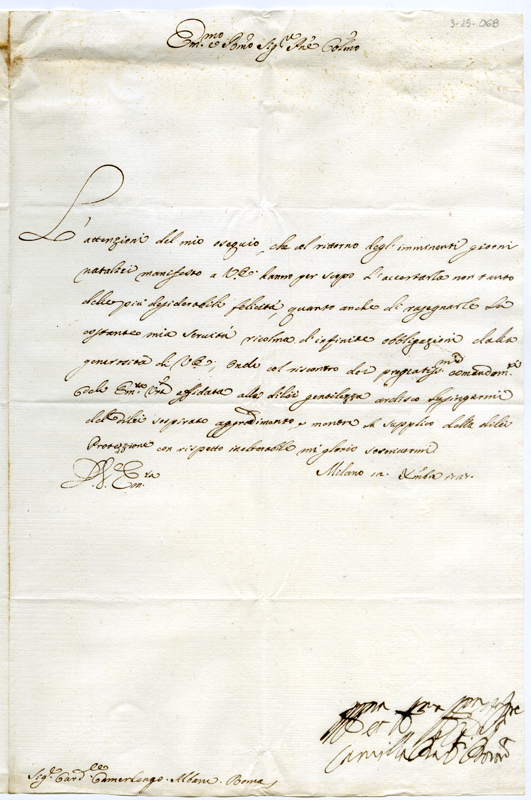 3-25-068
Em.mo e Rmo Sig.r Pne Colmo
L'attenzioni del mio osequio, che col ritorno degl'imminenti giorni
natalizi manifesto a V.E. hanno per scopo d'accertarla non tanto
delle più desiderabili felicità, quanto anche di rasegnarle la
costante mia servitù ricolma d'infinite obbligazioni dalla
generosità di V.E., onde col riscontro dei pregiatiss.mi comandam.ti
dell' Em.za V.ra affidata alla di lei gentilezza ardisco lusingarmi
del di lei sospirato aggradimento, e mentre la supplico della di lei
Protezzione con rispetto inalterabile mi glorio soscrivermi
D. V. Em.za
Milano 12. Xmbre
Sig.r Card.le Camerlengo Albani. Roma